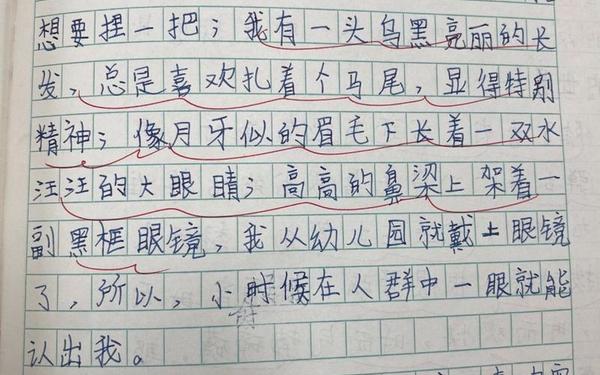 想要捏一把；我有一头乌黑亮丽的长
发，总是喜欢扎着个马尾，显得特别
精神；像月牙似的眉毛下长着一双水
汪汪的大眼睛；高高的鼻梁上架着一
副黑框眼镜，我从幼儿园就戴上眼镜
了，所以，小时候在人群中一眼就能
认出我。